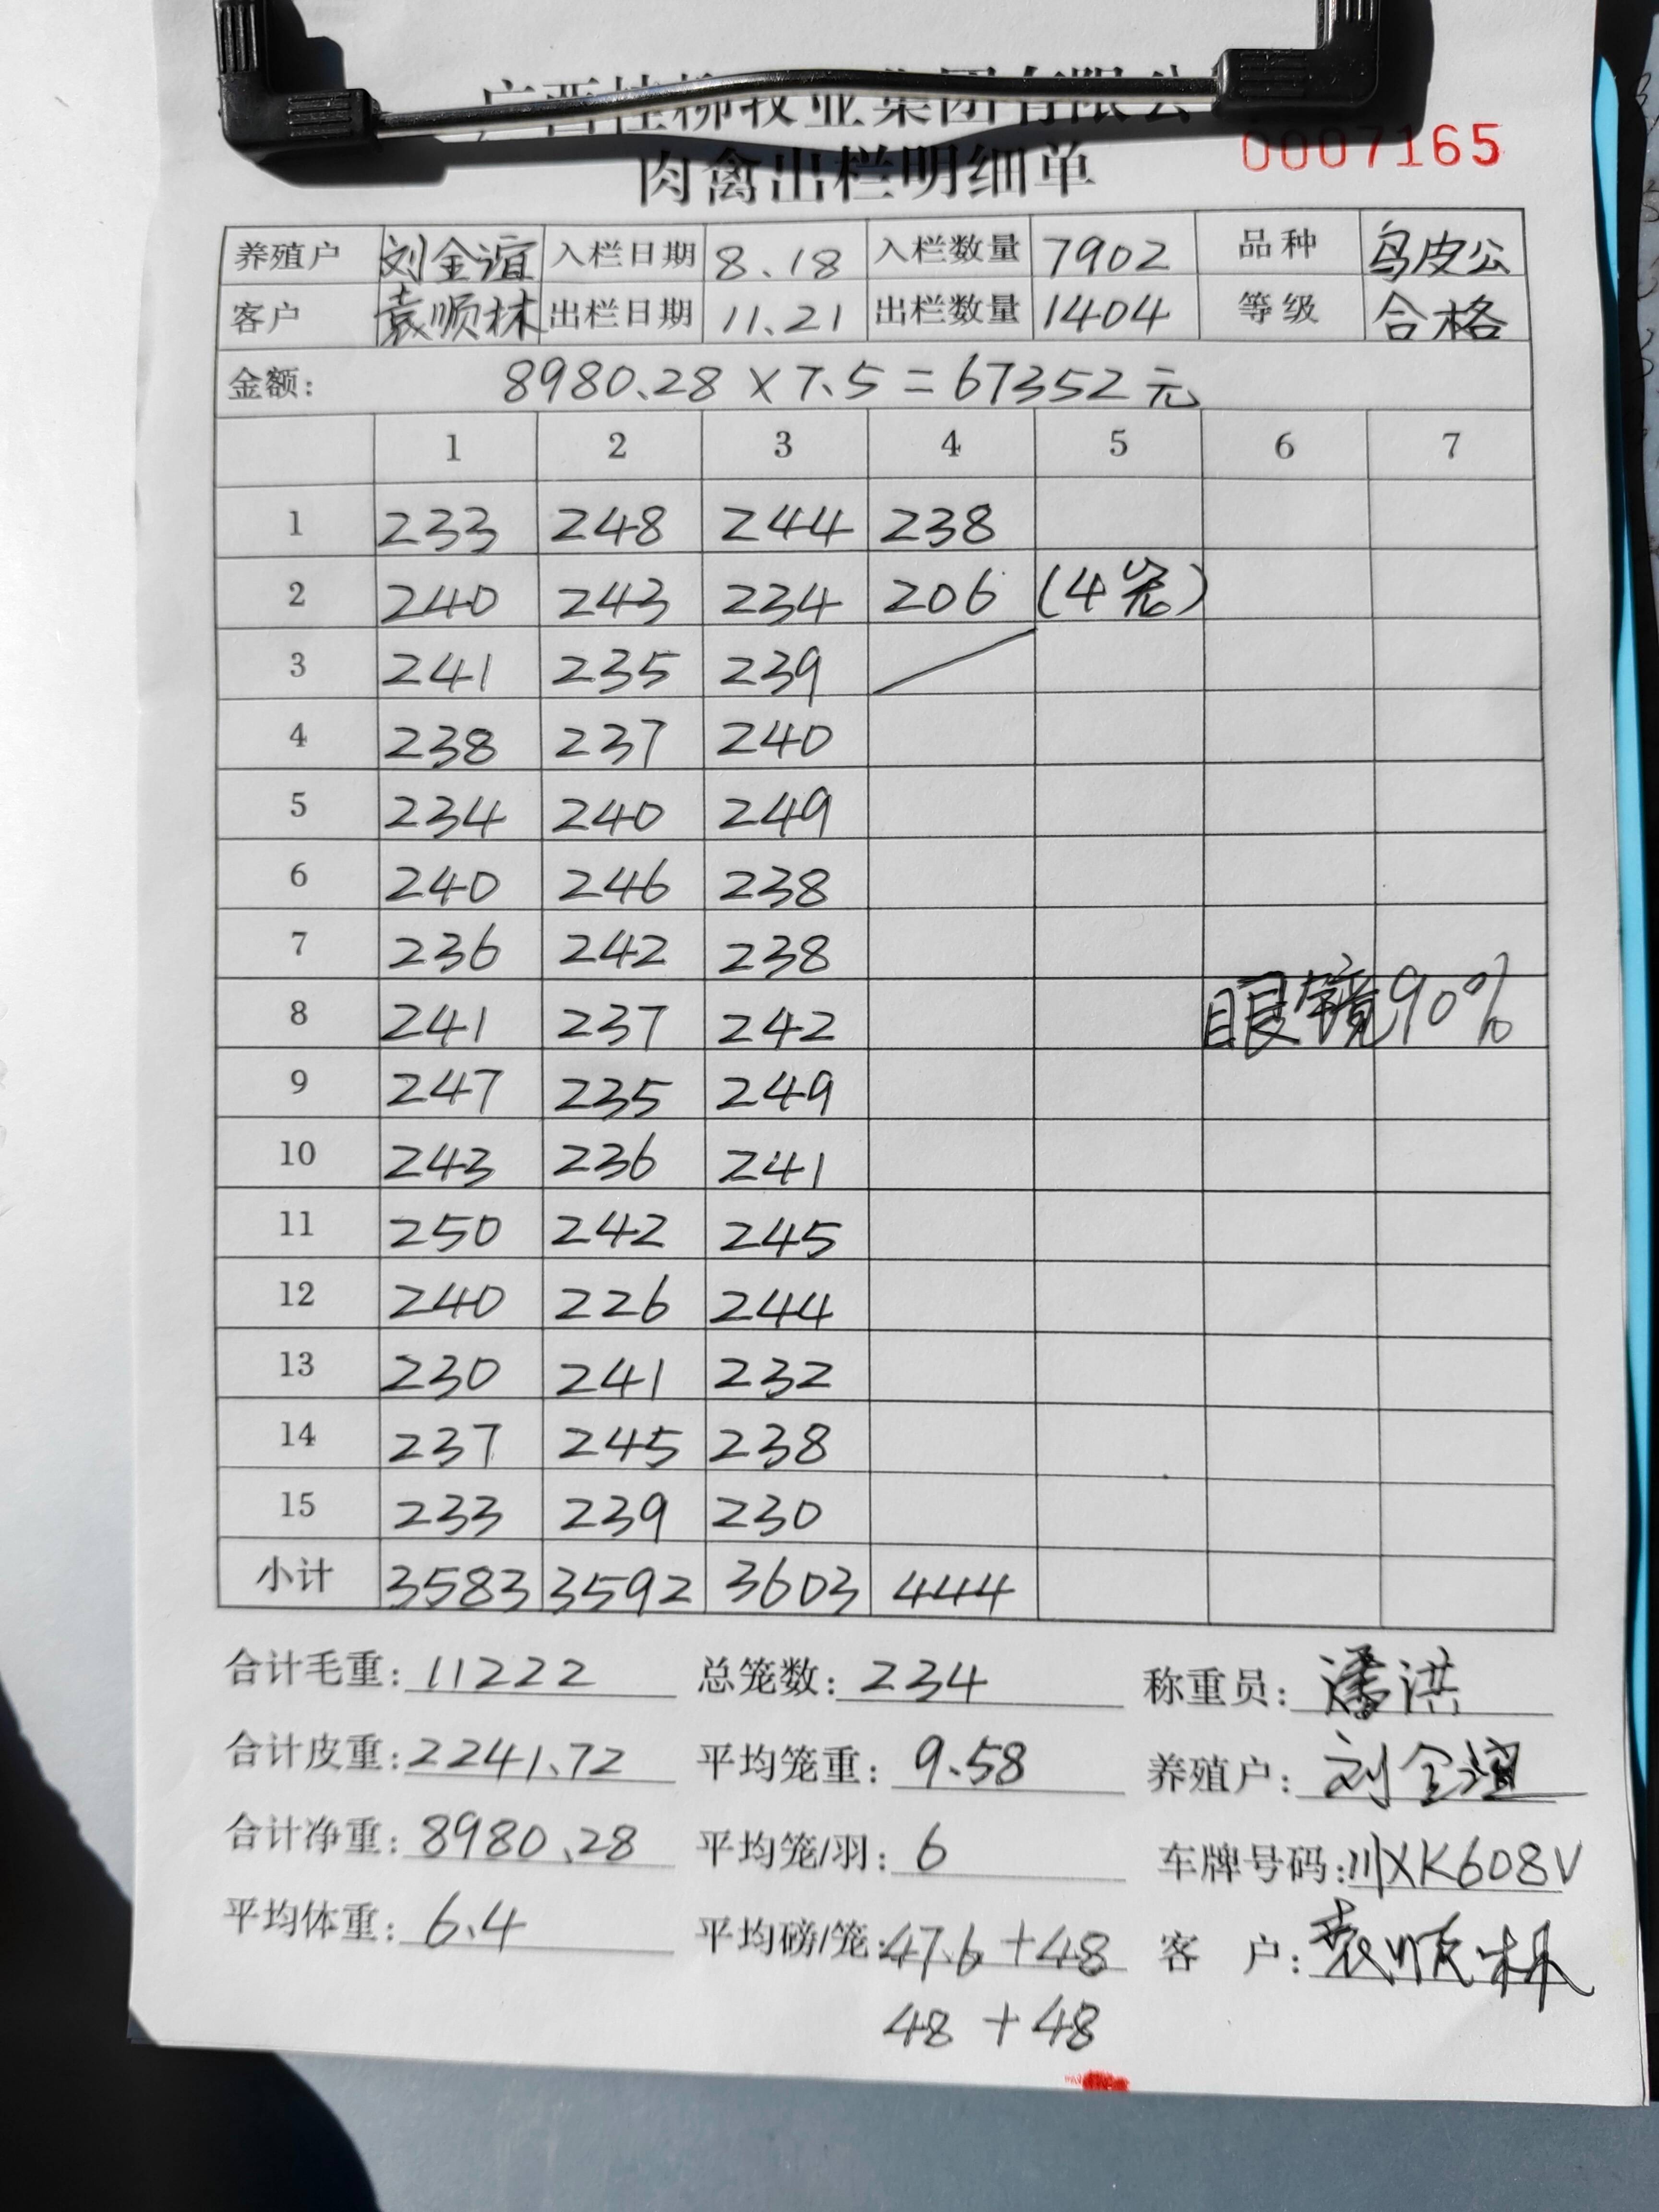 广西桂柳牧业集团有限公
肉禽出栏明细单
0007165
养殖户 刘金谊 入栏日期 8.18 入栏数量 7902 品种 乌皮公
客户 袁顺林 出栏日期 11.21 出栏数量 1404 等级 合格
金额: 8980.28×7.5=67352元
1 2 3 4 5 6 7
1 233 248 244 238
2 240 243 234 206 (4笼)
3 241 235 239
4 238 237 240
5 234 240 249
6 240 246 238
7 236 242 238
8 241 237 242 眼镜90%
9 247 235 249
10 243 236 241
11 250 242 245
12 240 226 244
13 230 241 232
14 237 245 238
15 233 239 230
小计 3583 3592 3603 444
合计毛重: 11222 总笼数: 234 称重员: 潘洪
合计皮重: 2241.72 平均笼重: 9.58 养殖户: 刘金谊
合计净重: 8980.28 平均笼/羽: 6 车牌号码: 川XK608V
平均体重: 6.4 平均磅/笼: 47.6+48 客 户: 袁顺林
48+48